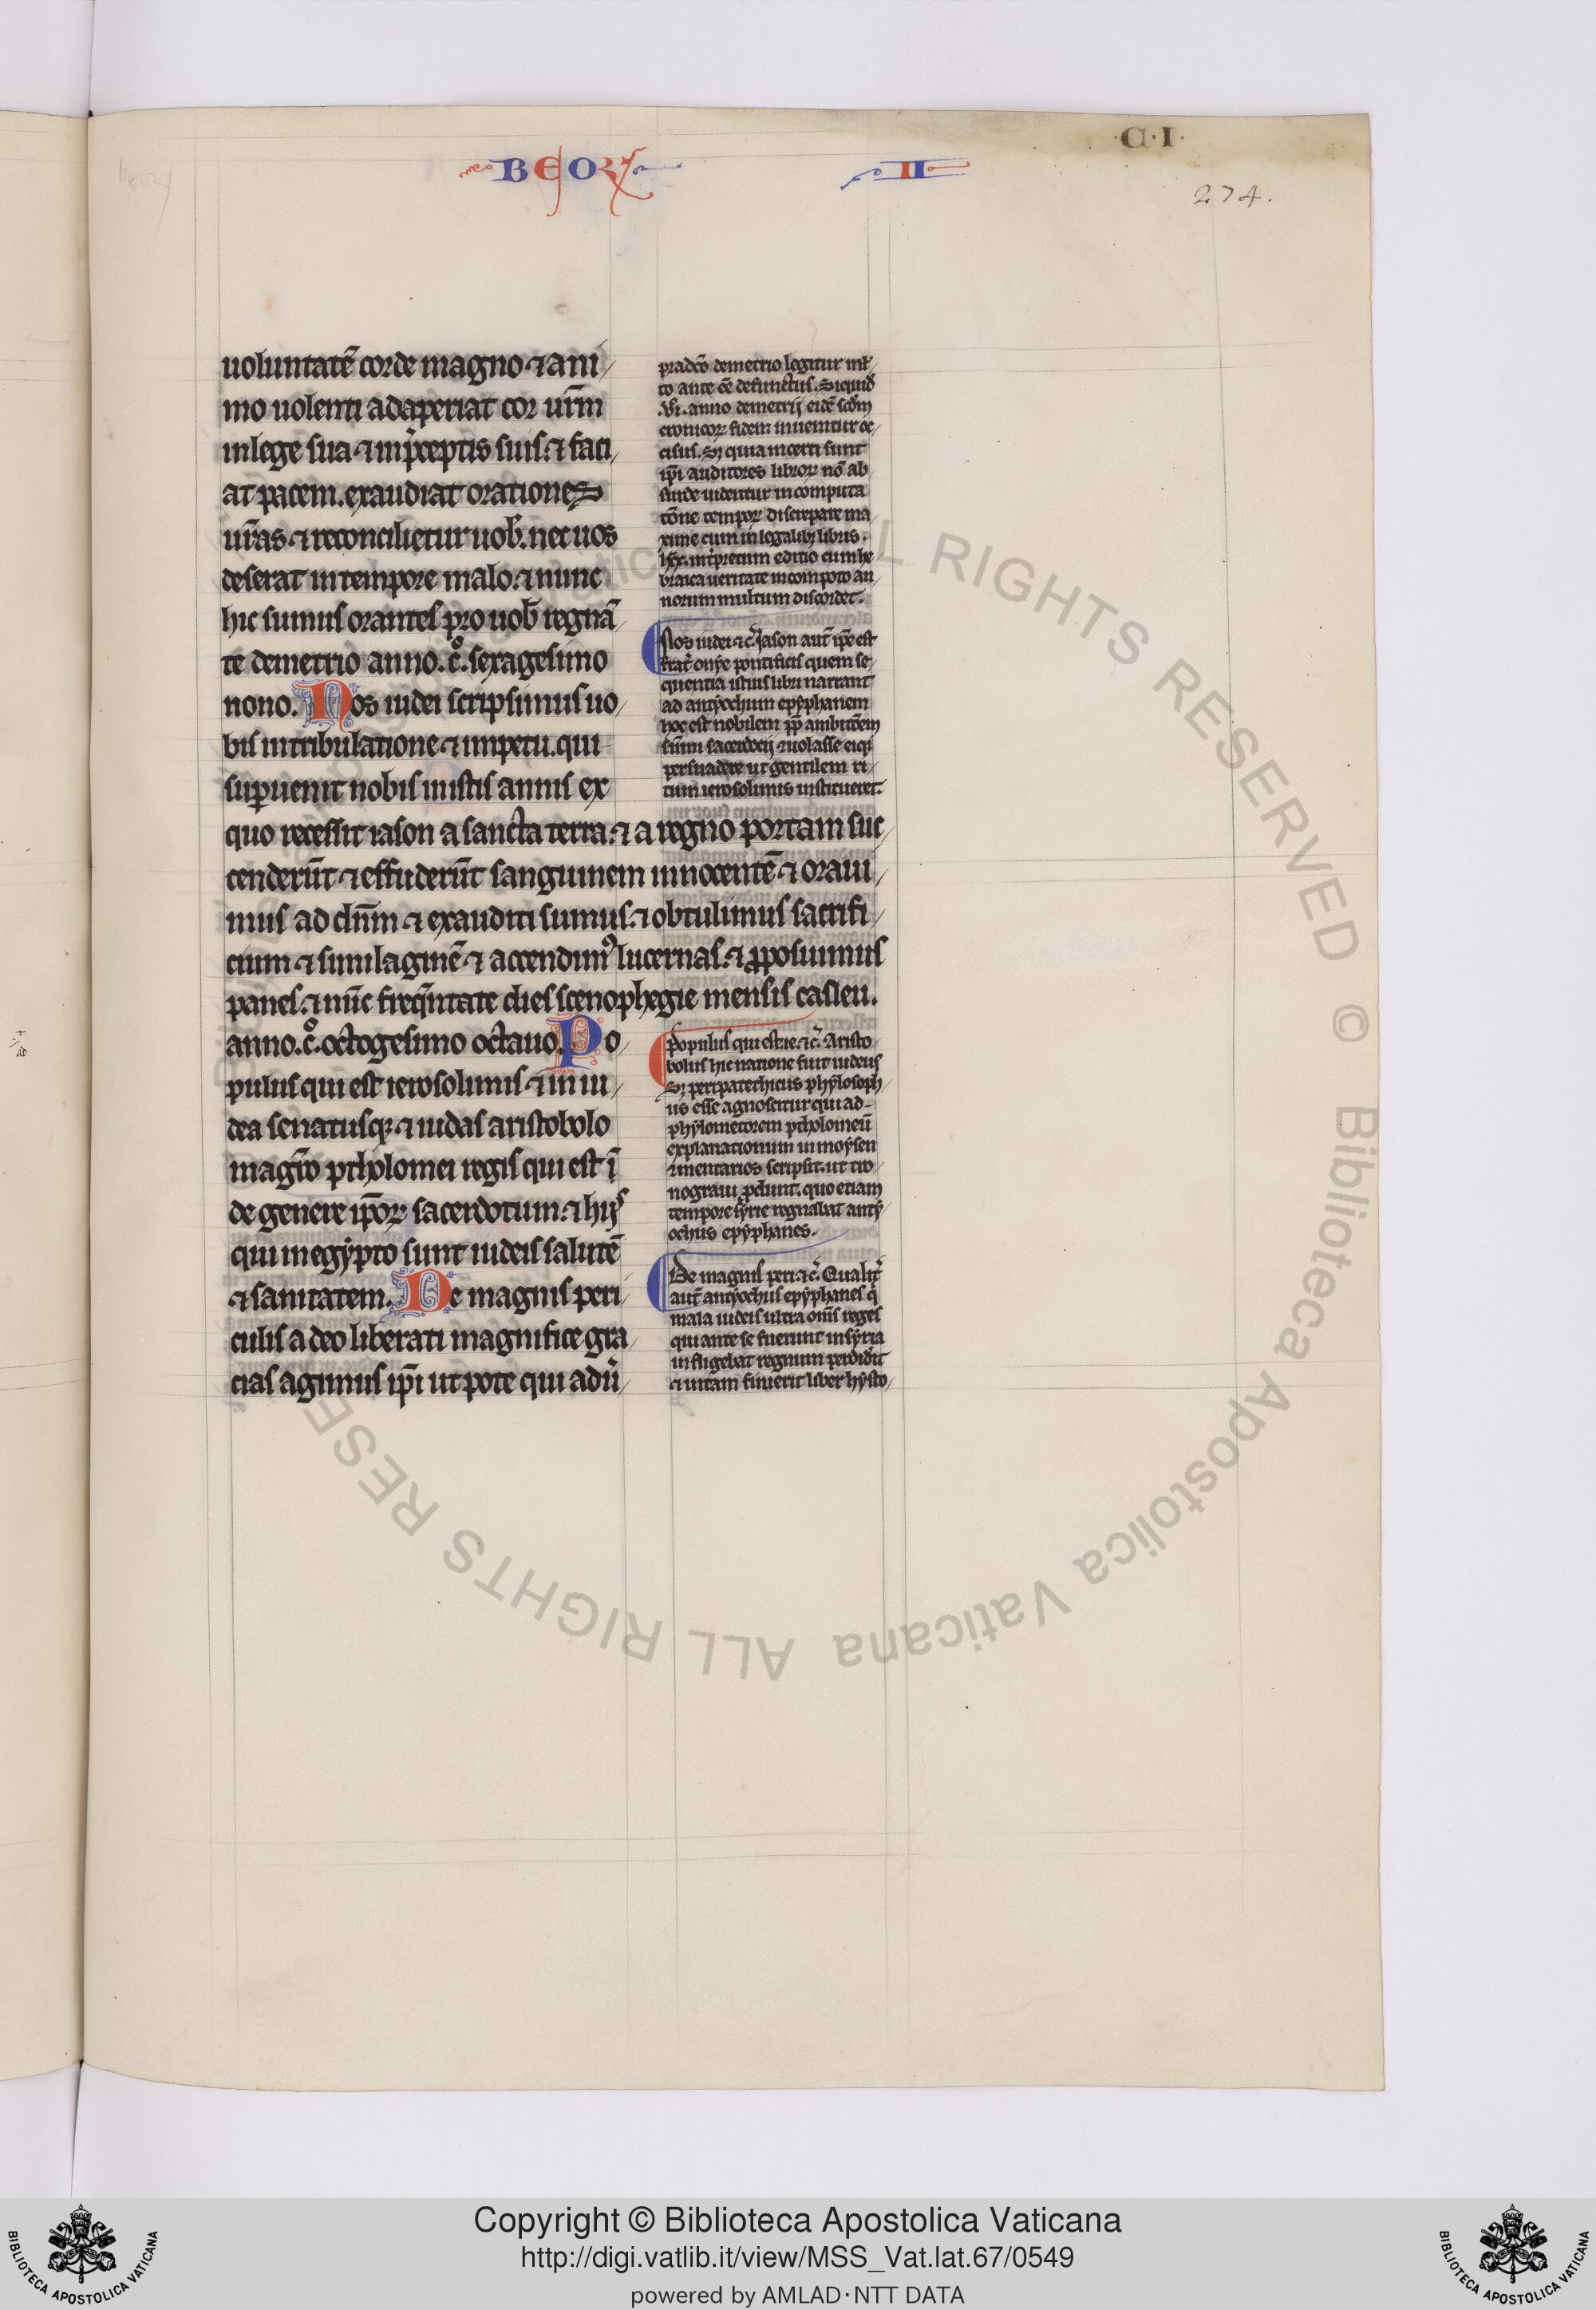 BEOR
II
C·I·
274.
uoluntatē corde magno ⁊ ani
mo uolenti adaperiat cor ur̄m
in lege sua ⁊ in p̄ceptis suis.⁊ faci
at pacem. exaudiat orationes
ur̄as ⁊ reconcilietur uob̄. nec uos
deserat in tempore malo.⁊ nunc
hic sumus orantes pro uob̄ regnā
te demetrio anno .c̊. sexagesimo
nono. Nos iudei scripsimus uo
bis in tribulatione ⁊ impetu. qui
superuenit nobis in istis annis ex
quo recessit iason a sancta terra.⁊ a regno portam suc
cenderūt ⁊ effuderūt sanguinem innocentē ⁊ oraui
mus ad dn̄m ⁊ exauditi sumus.⁊ obtulimus sacrifi
cium ⁊ similaginē ⁊ accendimꝰ lucernas.⁊ ꝓposuimus
panes.⁊ nūc freq̄ntate dies scenophegie mensis casleu.
anno .c̊. octogesimo octauo. Po
pulus qui est ierosolimis ⁊ in iu
dea senatusqꝫ ⁊ iudas aristobolo
magr̄o ptholomei regis qui est ī
de genere xp̄oꝝ sacerdotum.⁊ hijs
qui in egypto sunt iudeis salutē
⁊ sanitatem. De magnis peri
culis a deo liberati magnifice gra
cias agimus ip̄i ut pote qui adū
pradc̄o demetrio legitur ml̄
to ante eē defunctus. Siquid̄
.vi. anno demetrij eidē scd̄m
cronicoꝝ fidem inuenitur oc
cisus. Sꝫ quia incerti sunt
ip̄i auditores libroꝝ nō ab
surde uidentur in computa
tōne tempoꝝ discrepare ma
xime cum in legalibꝫ libris.
lxx. int̄pretum editio cum he
braica ueritate in compoto an
norum multum discordet.
Nos iudei ⁊c̄. Iason aut̄ ip̄e est
frat̄ onye pontificis quem se
quentia istius libri narrant
ad antyochum epyphanem
hoc est nobilem ꝓp̄ ambitōem
sūmi sacerdocij ꝯuolasse eiqꝫ
persuadere ut gentilem ri
tum ierosolimis institueret.
Populus qui est ie.⁊c̄. Aristo
bolus hic natione fuit iudeus
Sꝫ peripatethicus phylosoph
us esse agnoscitur qui ad
phylometorem ptholomeū
explanationum in moysen
ꝯmentarios scripsit. ut cro
nograui ꝓdunt. quo etiam
tempore syrie regnabat anty
ochus epyphanes.
De magnis peri.⁊c̄. Qualit̄
aut̄ antyochus epyphanes q̄
mala iudeis ultra om̄s reges
qui ante se fuerunt in syria
infligebat regnum perdidit
⁊ uitam finierit liber hysto
ALL RIGHTS RESERVED © Biblioteca Apostolica Vaticana ALL RIGHTS RESE
Copyright © Biblioteca Apostolica Vaticana
http://digi.vatlib.it/view/MSS_Vat.lat.67/0549
powered by AMLAD·NTT DATA
BIBLIOTECA APOSTOLICA VATICANA
BIBLIOTECA APOSTOLICA VATICANA